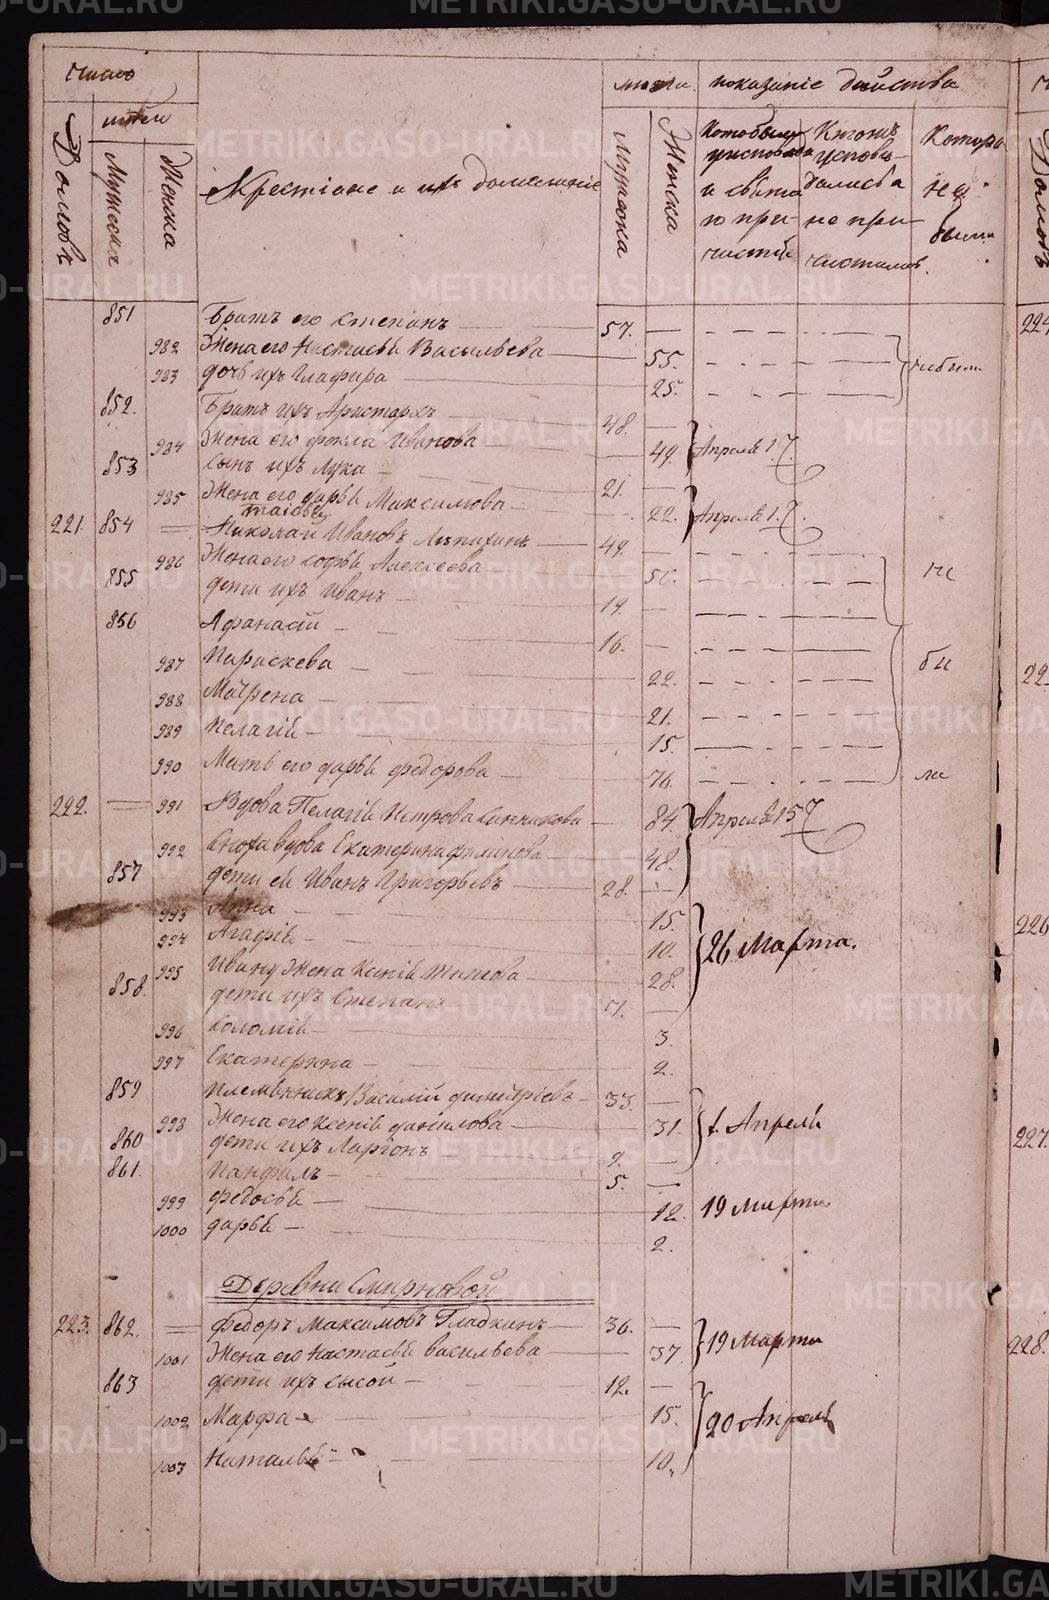 Число
лѣта показаніе действа
Домовъ
Мужска
Женска
Крестіане и ихъ домашніе
Мужска
Женска
и свято
не при-
не
были
851 Братъ его Степанъ 57.
982 Жена его Настасья Васильева 55.
983 дочь ихъ Глафира 25. небыли
852. Братъ ихъ Аристархъ 48.
984 Жена его Фекла Иванова 49. Апреля 17.
853 сынъ ихъ Лука 21.
985 Жена его Дарья Максимова 22. Апреля 17.
221. 854 Николай Ивановъ 49.
986 Жена его Софья Алексеева 50. не
855 дети ихъ Иванъ 19.
856 Афанасій 16.
987 Параскева 22. бы
988 Матрена 21.
989 Пелагія 15.
990 Мать его Дарья Федорова 76. ли
222. 991 Вдова Пелагія Петрова 84. Апреля 15
992 Сноха вдова Екатерина Филипова 48.
857 дети ей Иванъ Григорьевъ 28.
993 Анна 15.
994 Агафія 10. 26 Марта.
995 Ивану жена Ксенія Титова 28.
858. дети ихъ Степанъ 7.
996 Соломія 3.
997 Екатерина 2.
859 Племянникъ Василій Димитріевъ 33.
998 Жена его Ксенія Данилова 31. 1. Апреля
860 дети ихъ Ларіонъ 9.
861. Панфилъ 5.
999 Федосья 12. 19 Марта
1000 Дарья 2.
Деревни Смирновой
223. 862. Федоръ Максимовъ Гладкинъ 36.
1001 Жена его Настасья Васильева 37 19 Марта
863 дети ихъ Сысой 12.
1002 Марфа 15. 20 Апреля
1003 Наталья 10.
224
226
227.
228.
METRIKI.GASO-URAL.RU